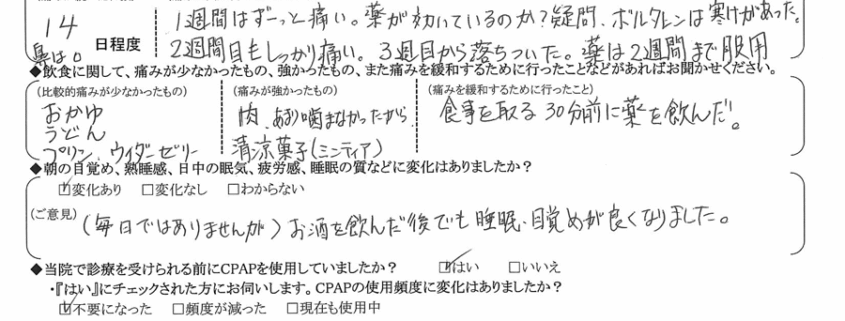 14
1週間はずーっと痛い。薬が効いているのか?疑問、ボルタレンは寒けがあった。
鼻は。 日程度
2週間目もしっかり痛い。3週目から落ちついた。薬は2週間まで服用
◆飲食に関して、痛みが少なかったもの、強かったもの、また痛みを緩和するために行ったことなどがあればお聞かせください。
(比較的痛みが少なかったもの) (痛みが強かったもの) (痛みを緩和するために行ったこと)
おかゆ
うどん
プリン、ウイダーゼリー
肉、あまり噛まなかったから
清涼菓子(ミンティア)
食事を取る30分前に薬を飲んだ。
◆朝の目覚め、熟睡感、日中の眠気、疲労感、睡眠の質などに変化はありましたか?
☑変化あり □変化なし □わからない
(ご意見)
(毎日ではありませんが)お酒を飲んだ後でも睡眠・目覚めが良くなりました。
◆当院で診療を受けられる前にCPAPを使用していましたか? ☑はい □いいえ
・『はい』にチェックされた方にお伺いします。CPAPの使用頻度に変化はありましたか?
☑不要になった □頻度が減った □現在も使用中